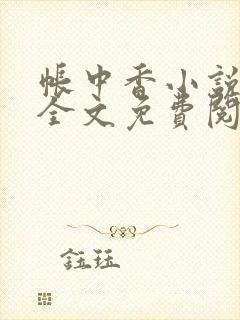 帐中香小説
全文免費閱
鈺珏